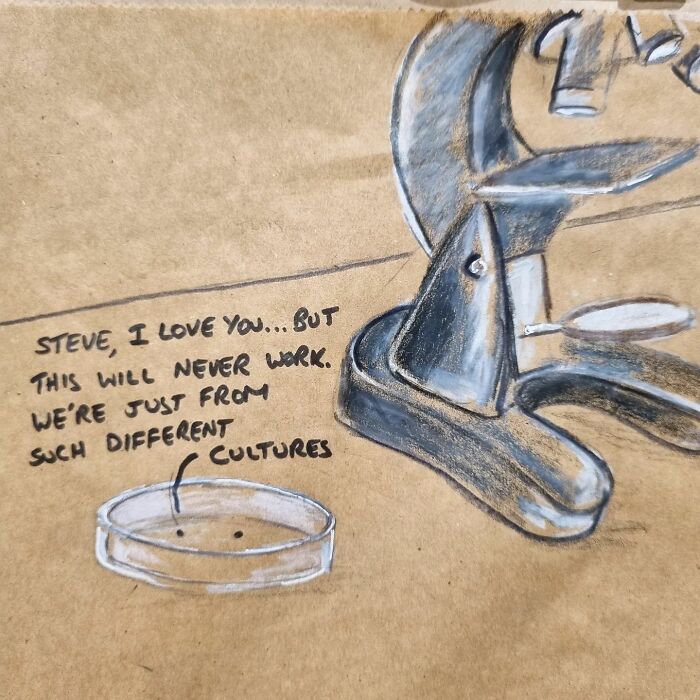 STEVE, I LOVE YOU... BUT
THIS WILL NEVER WORK.
WE'RE JUST FROM
SUCH DIFFERENT
CULTURES